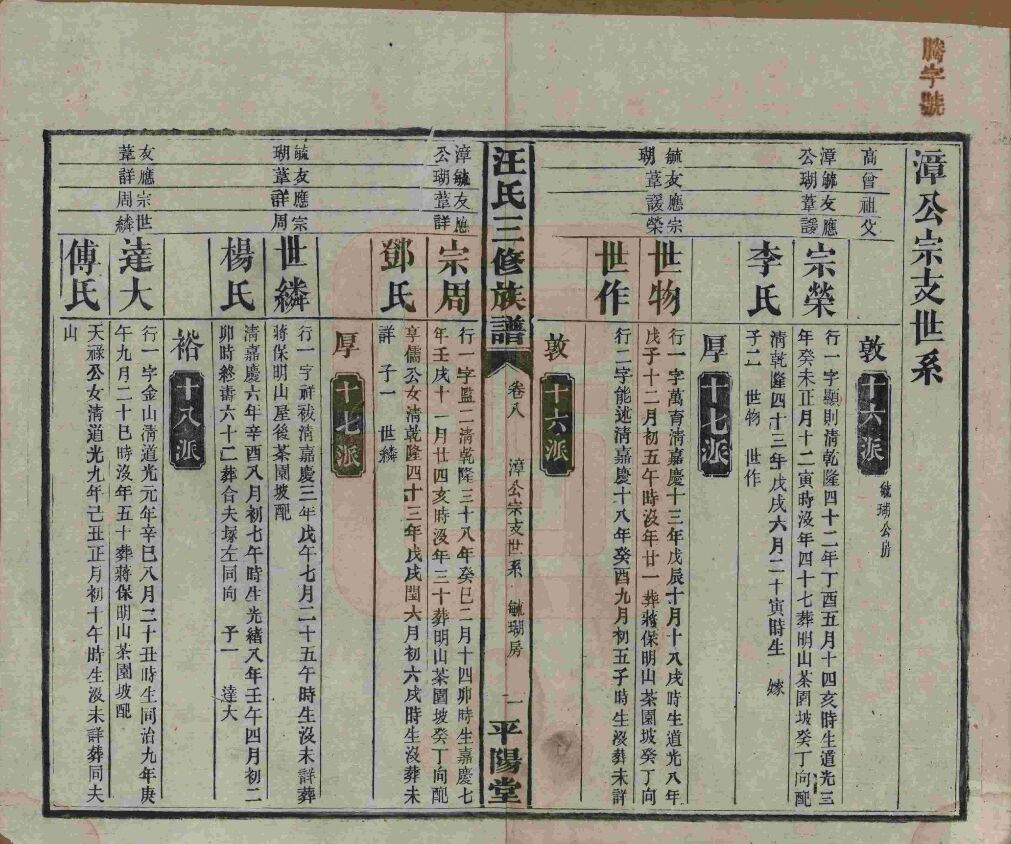 騰字號
漳公宗支世系
高曾祖父
敦
十六派
毓瑚公房
漳毓友應
公瑚葦諼
宗榮
行一字顯則清乾隆四十二年丁酉五月十四亥時生道光三
年癸未正月十二寅時沒年四十七葬明山茶園坡癸丁向配
李氏
清乾隆四十三年戊戌六月二十寅時生 嫁
子二 世物 世作
厚
十七派
毓友應宗
瑚葦諼榮
世物
行一字萬育清嘉慶十三年戊辰十月十八戌時生道光八年
戊子十二月初五午時沒年廿一葬蔣保明山茶園坡癸丁向
世作
行二字能述清嘉慶十八年癸酉九月初五子時生沒葬未詳
敦
十六派
汪氏三修族譜
卷八
漳公宗支世系
毓瑚房
一
平陽堂
漳毓友應
公瑚葦詳
宗周
行一字監二清乾隆三十八年癸巳二月十四卯時生嘉慶七
年壬戌十一月廿四亥時沒年三十葬明山茶園坡癸丁向配
鄧氏
享儒公女清乾隆四十三年戊戌閏六月初六戌時生沒葬未
詳 子一 世鱗
厚
十七派
毓友應宗
瑚葦詳周
世鱗
行一字祥祓清嘉慶三年戊午七月二十五午時生沒未詳葬
蔣保明山屋後茶園坡配
楊氏
清嘉慶六年辛酉八月初七午時生光緒八年壬午四月初二
卯時終壽六十二葬合夫塚左同向 子一 達大
裕
十八派
友應宗世
葦詳周鱗
達大
行一字金山清道光元年辛巳八月二十丑時生同治九年庚
午九月二十巳時沒年五十葬蔣保明山茶園坡配
傅氏
天祿公女清道光九年己丑正月初十午時生沒未詳葬同夫
山